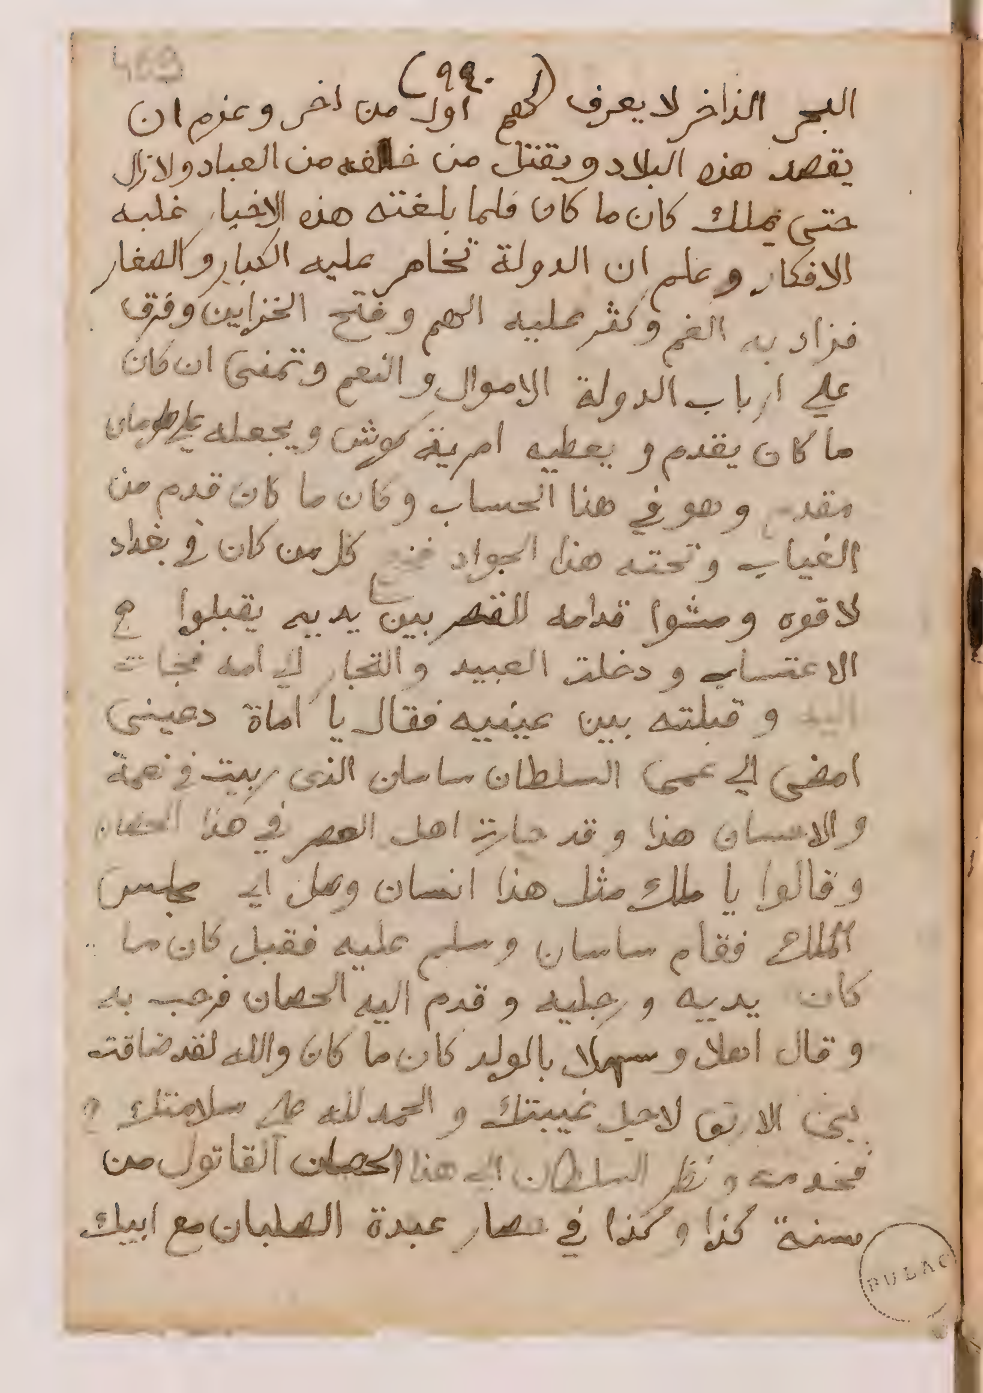 469
(٩٩٠)
البحر الذاخر لا يعرف لهم اول من اخر وعزم ان
يقصد هذه البلاد ويقتل من خلفه من العباد ولازال
حتى يملك كان ما كان فلما بلغته هذه الاخبار غلبه
الافكار وعلم ان الدولة تخامر عليه الكبار والصغار
فزاد به الغم وكثر عليه الهم وفتح الخزاين وفرق
علي ارباب الدولة الاموال والنعم وتمنى ان كان
ما كان يقدم و يعطيه امرية ويجعله علي
مقدم وهو في هذا الحساب وكان ما كان قدم من
الغياب وتحته هذا الجواد كل من كان في بغداد
لاقوه ومشوا قدامه للقصر بين يديه يقبلوا
الاعتساب و دخلت العبيد والتجار الي امه فجات
اليه و قبلته بين عينيه فقال يا اماة دعيني
امضى الي عمى السلطان ساسان الذى ربيت في نعمة
والاحسان هذا وقد حارت اهل العصر في هذا الحصان
وقالوا يا ملك مثل هذا انسان وصل الي مجلس
الملك فقام ساسان وسلم عليه فقبل كان ما
كان يدييه ورجليه وقدم اليه الحصان فرحب به
وقال اهلا وسهلا بالولد كان ما كان والله لقد ضاقت
بنى الارض لاجل غيبتك والحمد لله علي سلامتك
فخدمه ونظر السلطان الي هذا الحصان القاتول من
سنة كذا وكذا في حصار عبدة الصلبان مع ابيك